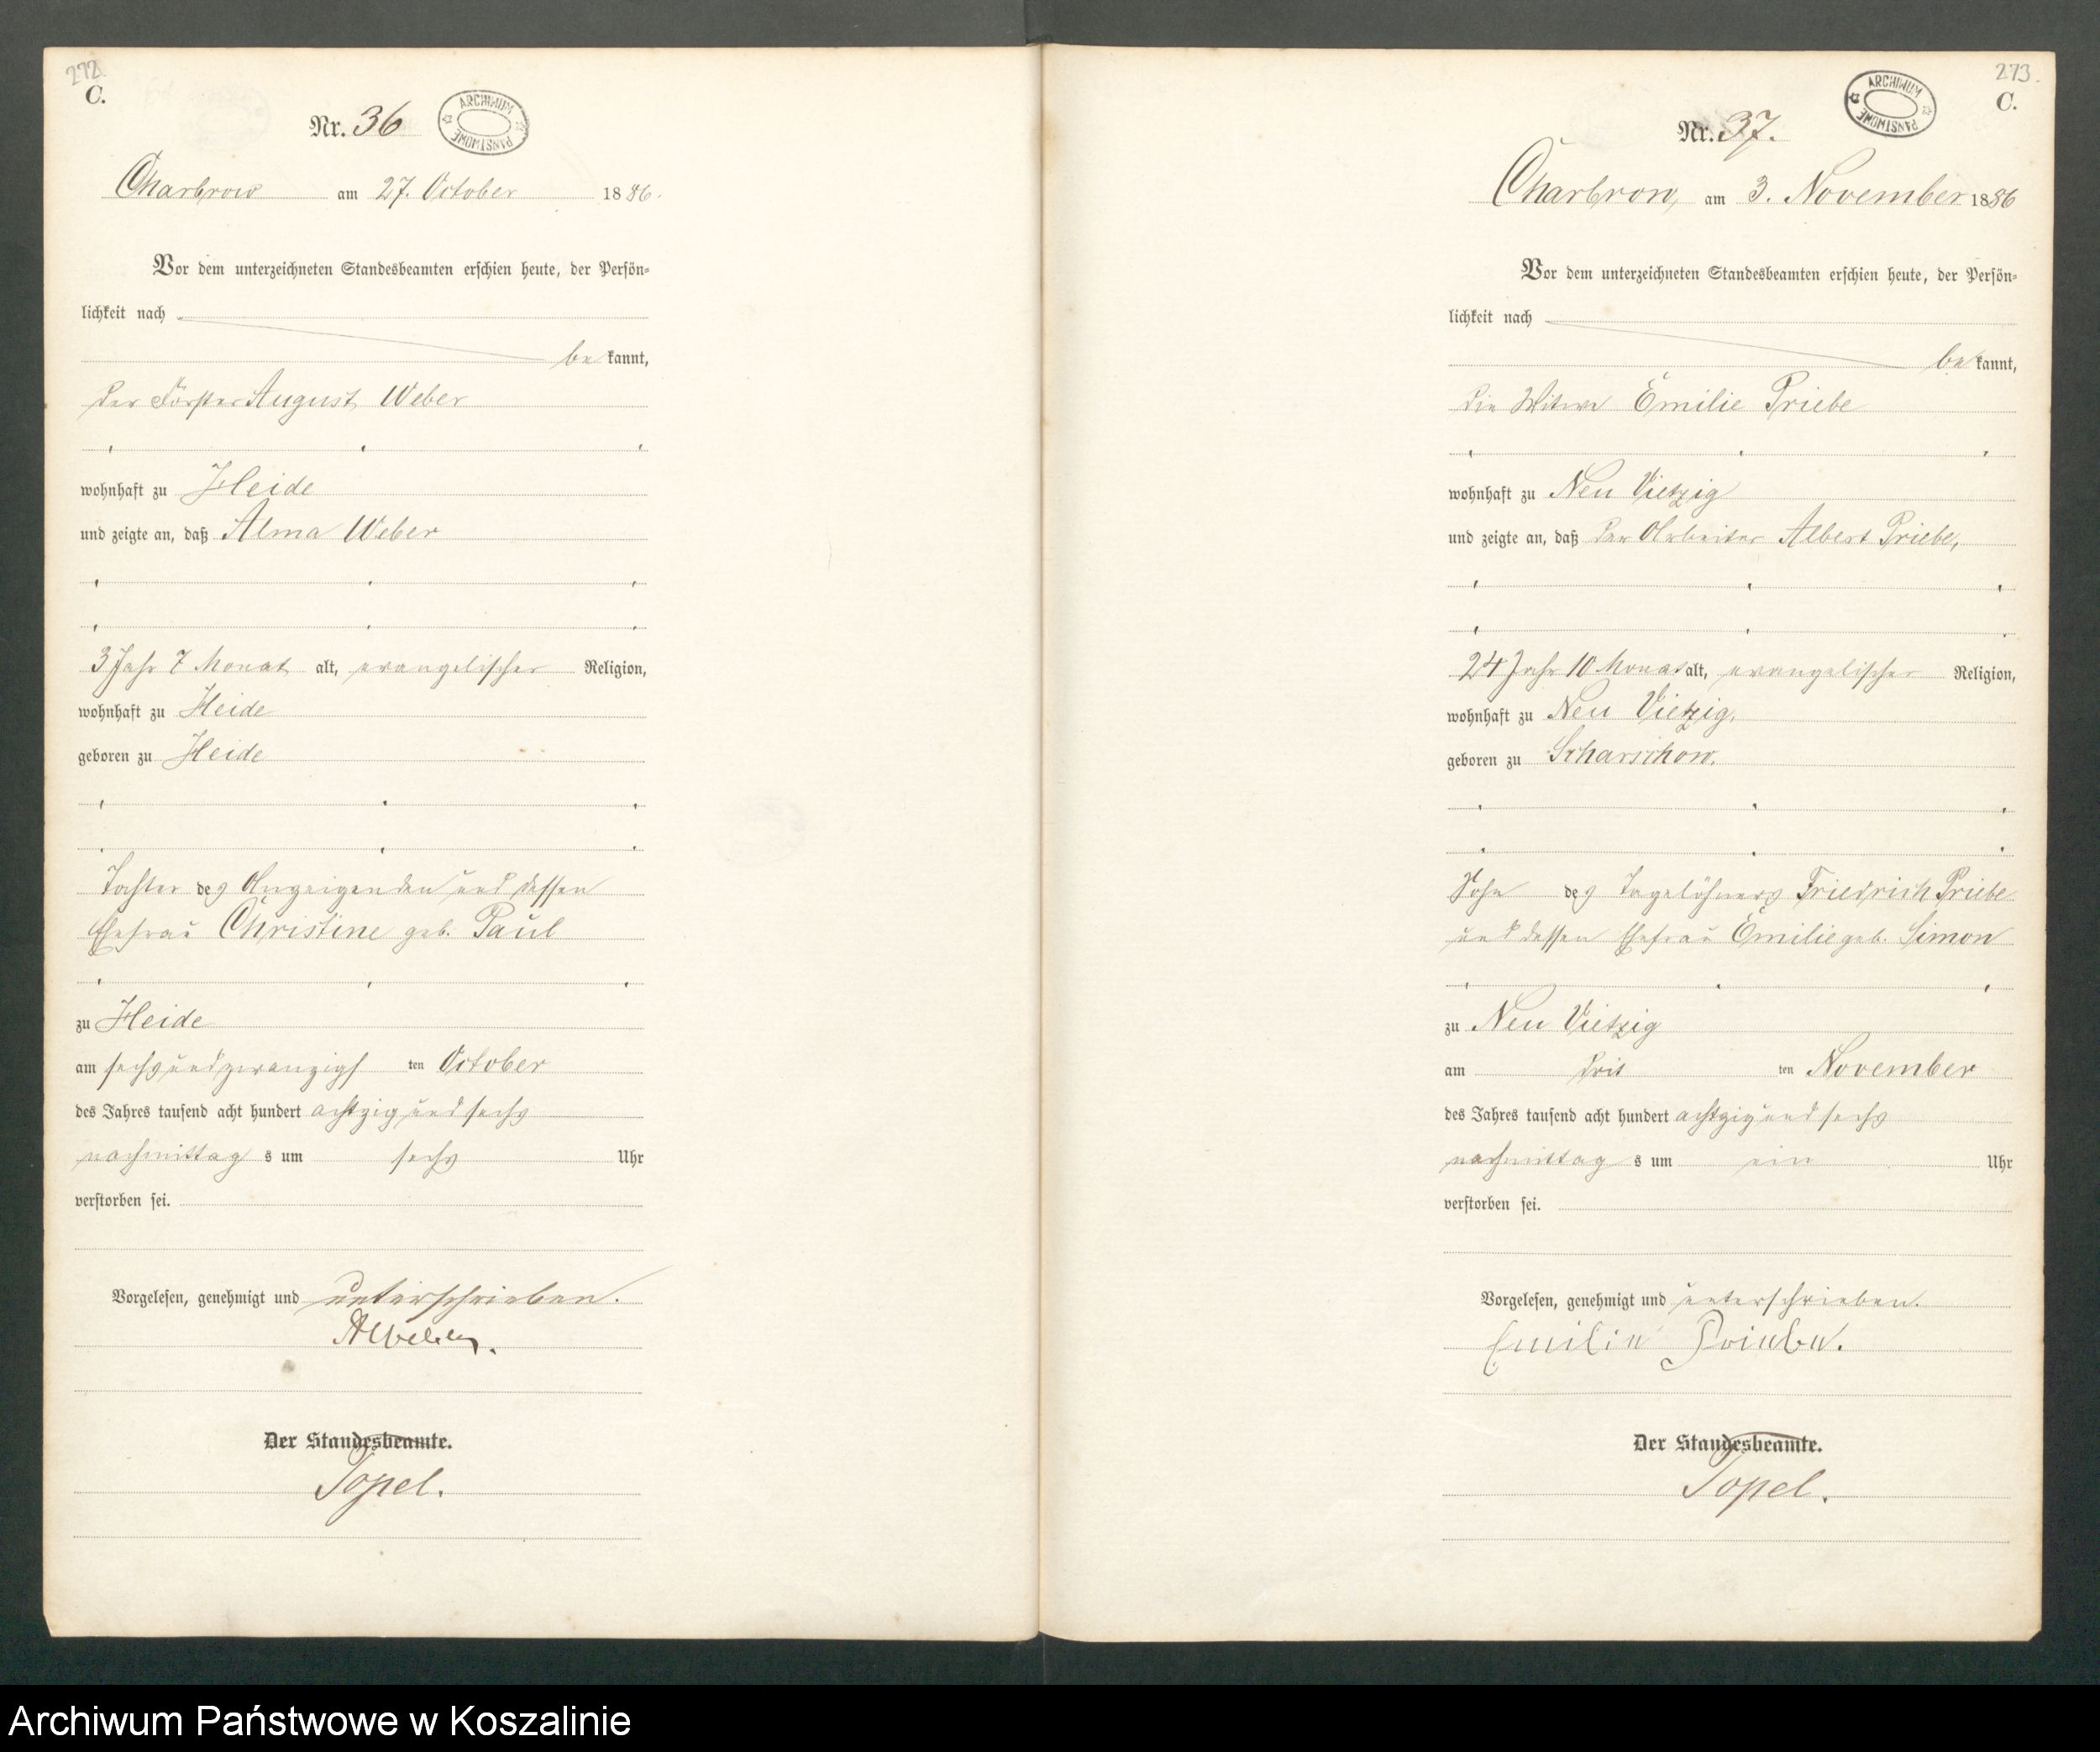 272.
C.
Nr. 36
ARCHIWUM PAŃSTWOWE
Charbrow am 27. October 1886.
Vor dem unterzeichneten Standesbeamten erschien heute, der Persön-
lichkeit nach
bekannt,
der Förster August Weber
wohnhaft zu Heide
und zeigte an, daß Alma Weber
3 Jahr 7 Monat alt, evangelischer Religion,
wohnhaft zu Heide
geboren zu Heide
Tochter des Anzeigenden und dessen
Ehefrau Christine geb. Paul
zu Heide
am sechsundzwanzigsten October
des Jahres tausend acht hundert achtzig und sechs
nachmittags um sechs Uhr
verstorben sei.
Vorgelesen, genehmigt und unterschrieben.
AWeber.
Der Standesbeamte.
Topel.
273.
C.
Nr. 37.
ARCHIWUM PAŃSTWOWE
Charbrow, am 3. November 1886
Vor dem unterzeichneten Standesbeamten erschien heute, der Persön-
lichkeit nach
bekannt,
die Witwe Emilie Priebe
wohnhaft zu Neu Vietzig
und zeigte an, daß der Arbeiter Albert Priebe,
24 Jahr 10 Monat alt, evangelischer Religion,
wohnhaft zu Neu Vietzig,
geboren zu Scharschow.
Sohn des Tagelöhners Friedrich Priebe
und dessen Ehefrau Emilie geb. Simon
zu Neu Vietzig
am dritten November
des Jahres tausend acht hundert achtzig und sechs
nachmittags um ein Uhr
verstorben sei.
Vorgelesen, genehmigt und unterschrieben.
Emilie Priebe.
Der Standesbeamte.
Topel.
Archiwum Państwowe w Koszalinie